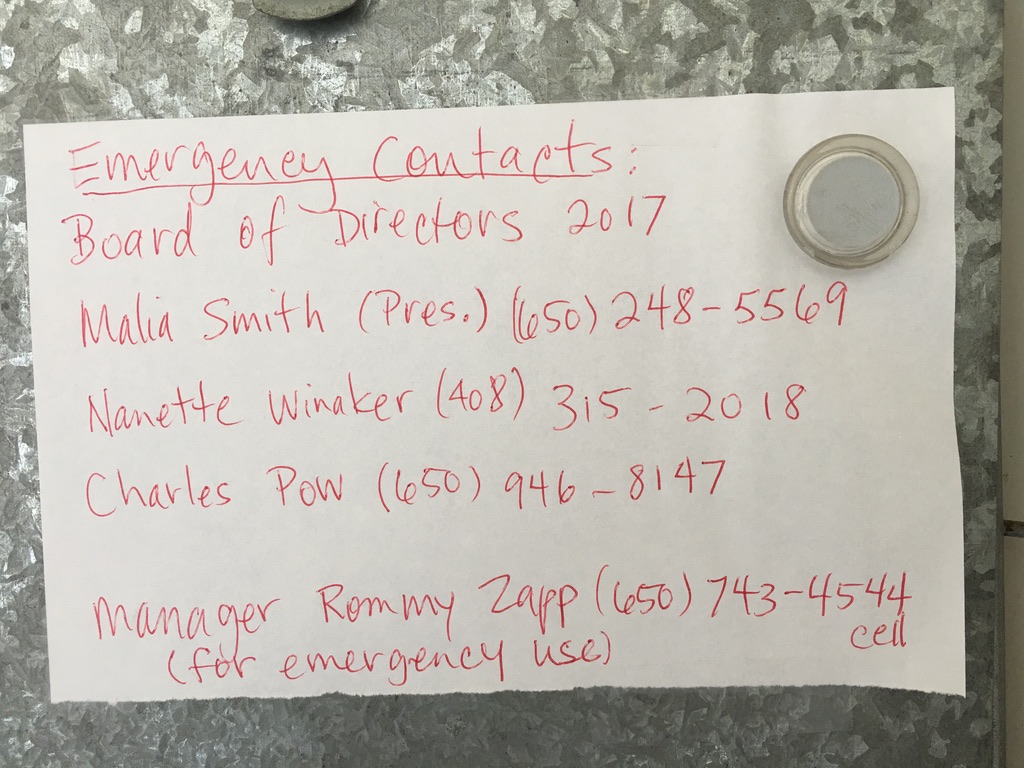 Emergency Contacts:
Board of Directors 2017
Malia Smith (Pres.) (650) 248-5569
Nanette Winaker (408) 315 - 2018
Charles Pow (650) 946 - 8147
Manager Rommy Zapp (650) 743-4544
cell
(for emergency use)